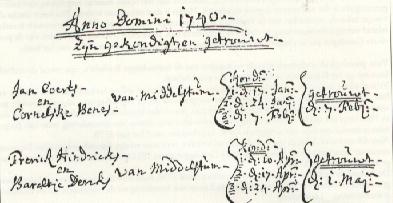 Anno Domini 1740.
Zijn gekondight en getrouwt.
Jan Geerts
en
Cornelske Benes
van Middelstum.
Kondi:
1. d: 17. Jan:
2. d: 24. Jan:
3. d: 7. Febr:
getrouwt
d: 7. Febr:
Frerick Hindricks
en
Bareltje Derks
van Middelstum.
Kondi:
1. d: 10. Apr:
2. d: 17. Apr:
3. d: 24. Apr:
getrouwt
d: 1. Maj: